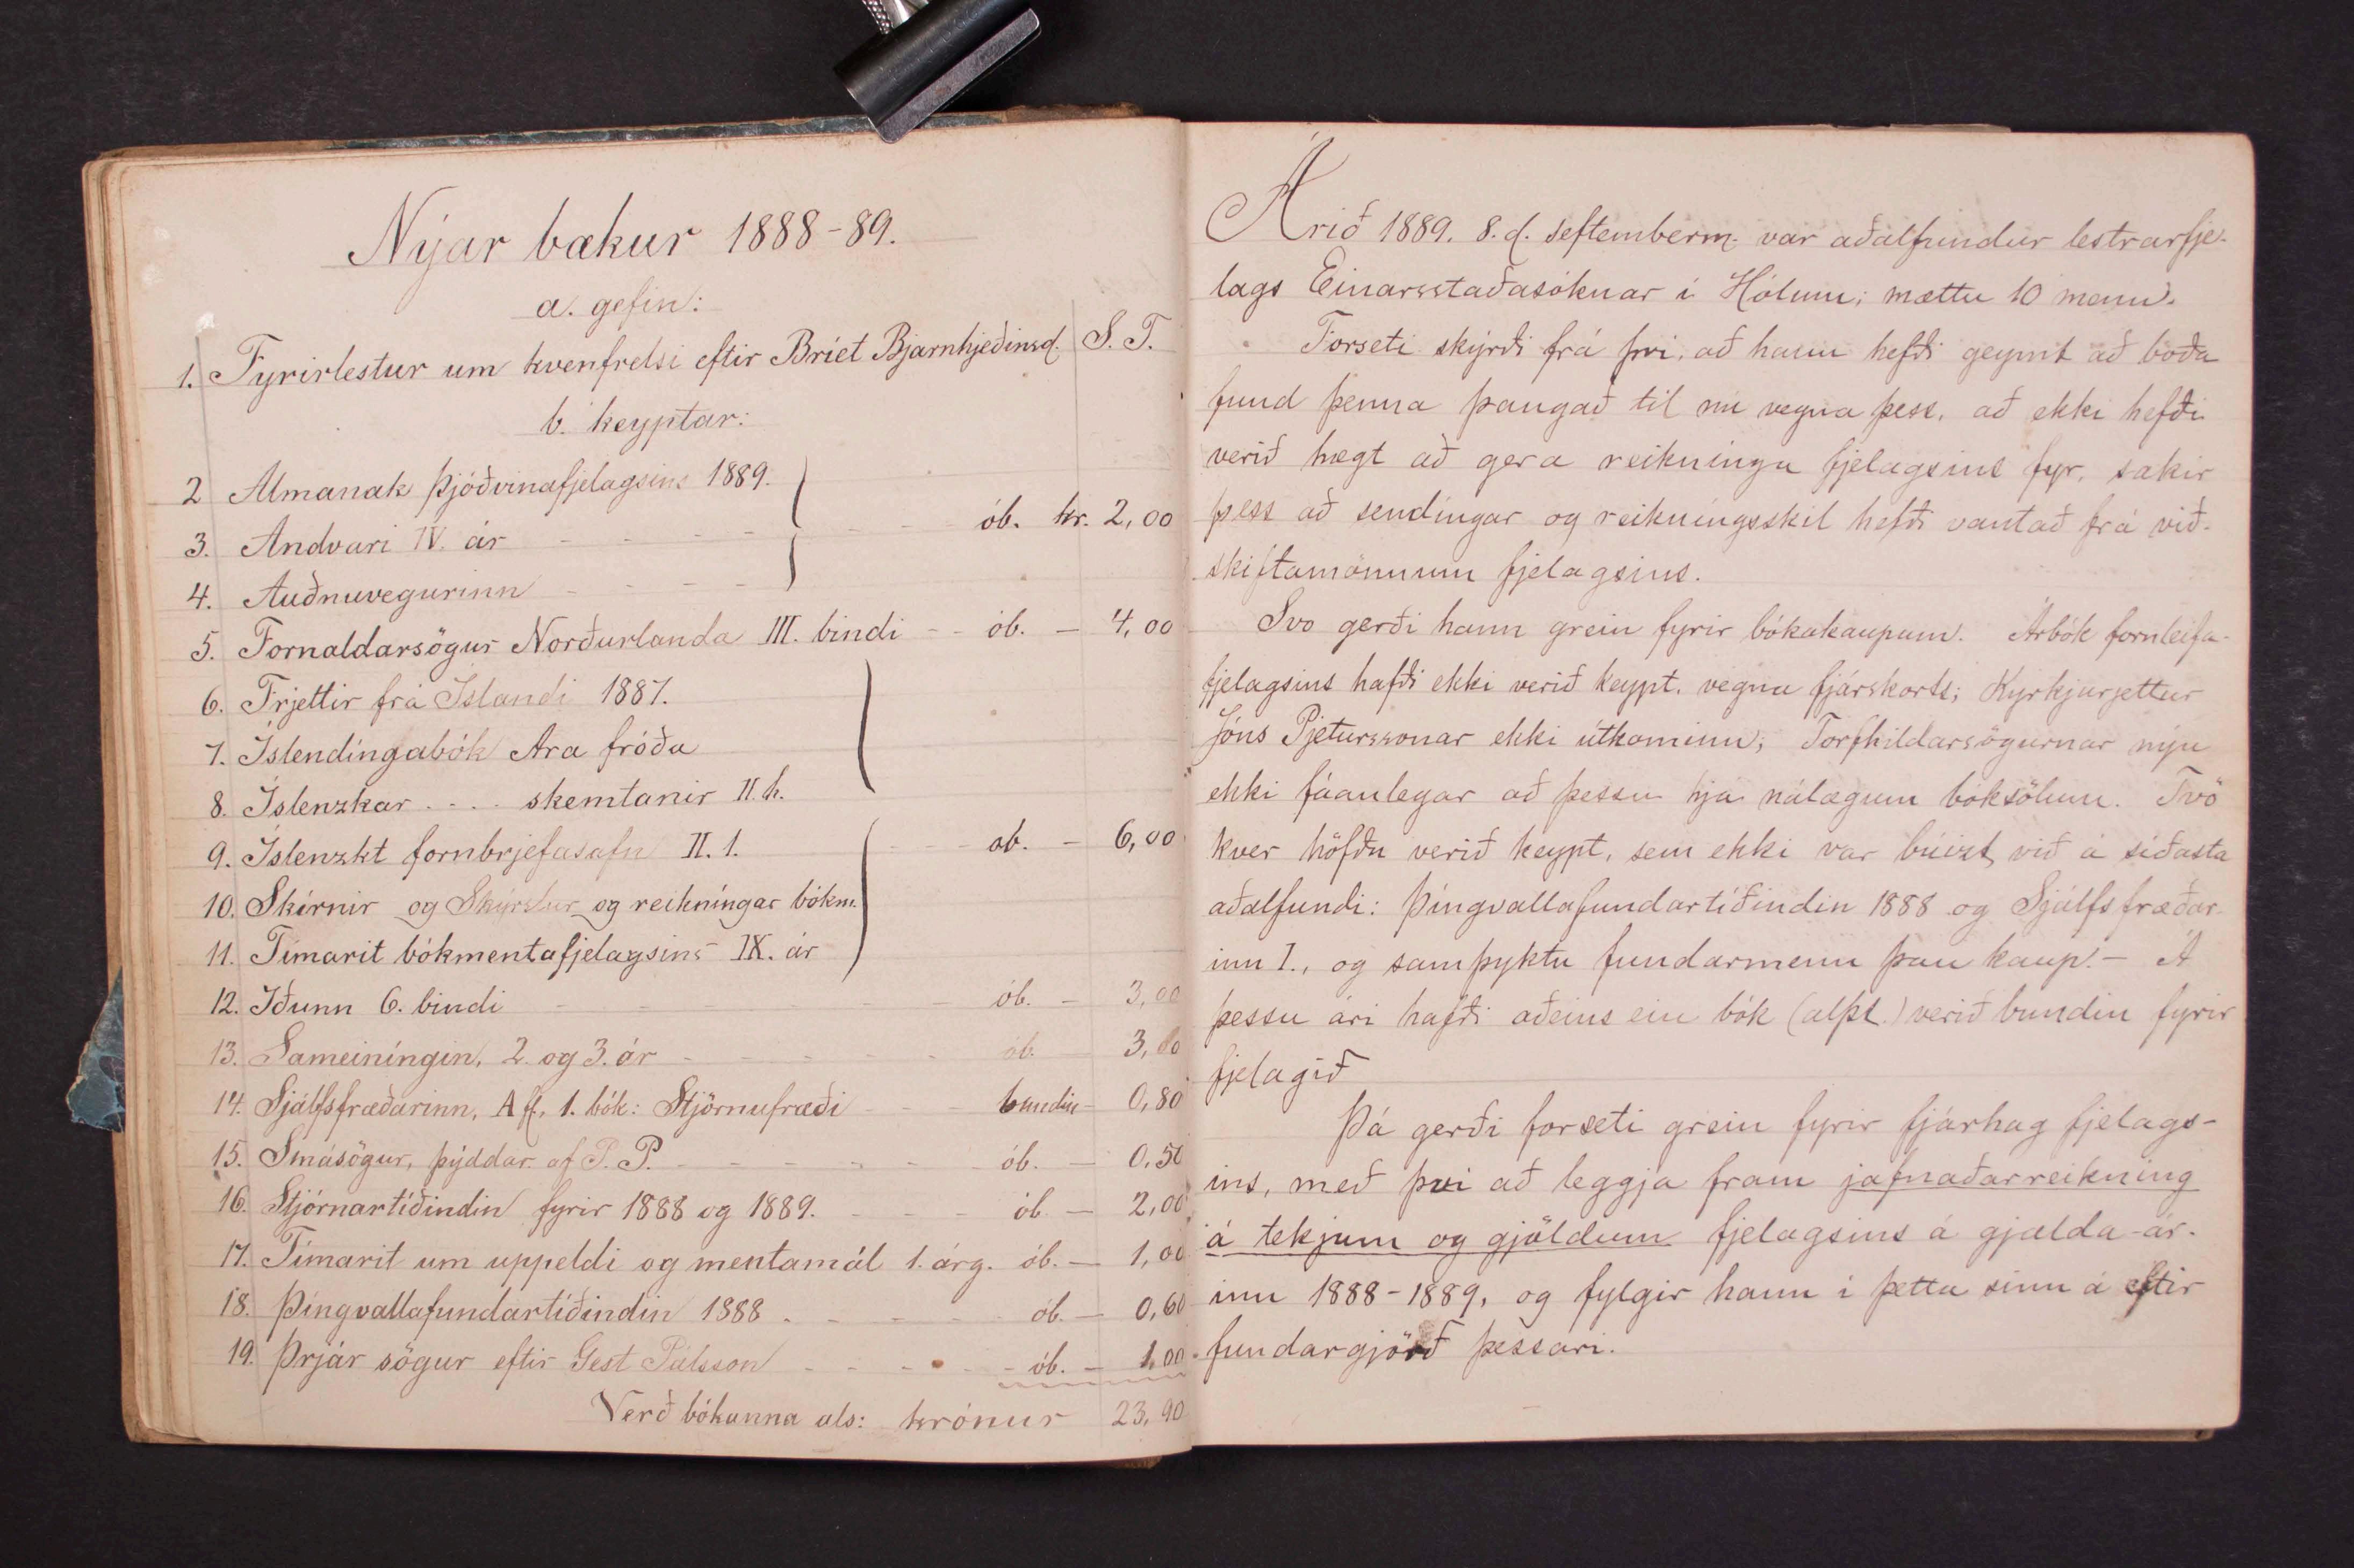 Nýjar bækur 1888-89.
a. gefin:
1. Fyrirlestur um kvenfrelsi eftir Bríet Bjarnhjeðinsd. S. T.
b. keyptar:
2 Almanak Þjóðvinafjelagsins 1889.
3. Andvari IV. ár - - - - ób. kr. 2,00
4. Auðnuvegurinn - - - -
5. Fornaldarsögur Norðurlanda III. bindi - - ób. - 4,00
6. Frjettir frá Íslandi 1887.
7. Íslendíngabók Ara fróða
8. Íslenzkar . . . . skemtanir II. h.
9. Íslenzkt fornbrjefasafn II. 1. - - ób. - 6,00
10. Skírnir og Skýrslur og reikníngar bókm.
11. Tímarit bókmentafjelagsins IX. ár
12. Iðunn 6. bindi - - - - - ób. - 3,00
13. Sameiníngin, 2. og 3. ár - - - - ób. 3,00
14. Sjálfsfræðarinn, A fl, 1. bók: Stjörnufræði - - bundin - 0,80
15. Smásögur, þýddar af P. P. - - - - - ób. - 0,50
16. Stjórnartíðindin fyrir 1888 og 1889. - - - ób. - 2,00
17. Tímarit um uppeldi og mentamál 1. árg. ób. - 1,00
18. Þíngvallafundartíðindin 1888 - - - - ób. - 0,60
19. Þrjár sögur eftir Gest Pálsson - - - - ób. - 1,00
Verð bókanna als: krónur 23,90
Árið 1889. 8. d. septemberm. var aðalfundur lestrarfje-
lags Einarsstaðasóknar í Hólum; mættu 10 menn.
Forseti skýrði frá því, að hann hefði geymt að boða
fund þenna þangað til nú vegna þess, að ekki hefði
verið hægt að gera reiknínga fjelagsins fyr, sakir
þess að sendíngar og reikníngsskil hefði vantað frá við-
skiftamönnum fjelagsins.
Svo gerði hann grein fyrir bókakaupum. Árbók fornleifa-
fjelagsins hafði ekki verið keypt, vegna fjárskorts; Kyrkjurjettur
Jóns Pjeturssonar ekki útkominn; Torfhildarsögurnar nýju
ekki fáanlegar að þessu hjá nálægum bóksölum. Tvö
kver höfðu verið keypt, sem ekki var búizt við á síðasta
aðalfundi: Þíngvallafundartíðindin 1888 og Sjálfsfræðar-
inn I., og samþyktu fundarmenn þau kaup. - Á
þessu ári hafði aðeins ein bók (alþt.) verið bundin fyrir
fjelagið
Þá gerði forseti grein fyrir fjárhag fjelags-
ins, með því að leggja fram jafnaðarreikning
á tekjum og gjöldum fjelagsins á gjalda-ár-
inu 1888-1889, og fylgir hann í þetta sinn á eftir
fundargjörð þessari.